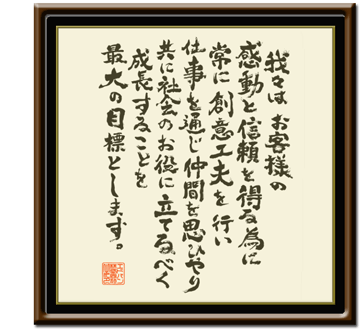 我々は お客様の
感動と信頼を得る為に
常に 創意工夫を 行い
仕事を通じ 仲間を思いやり
共に社会のお役に立てるべく
成長することを
最大の目標とします。